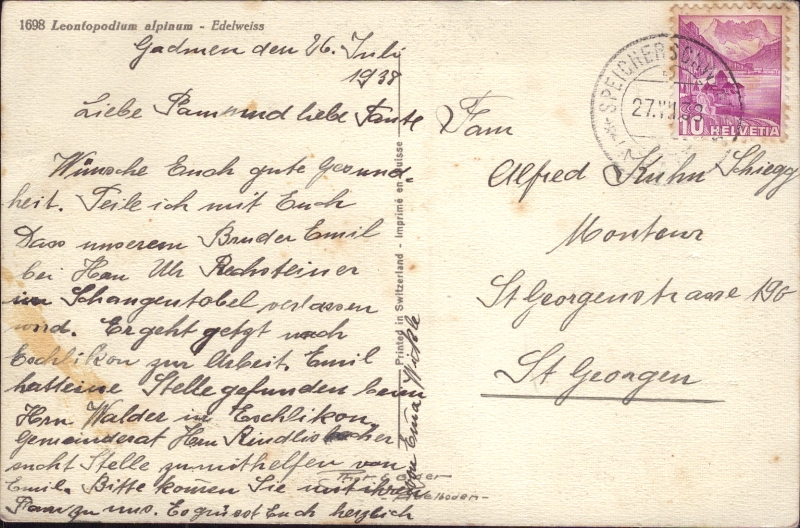 1698 Leontopodium alpinum - Edelweiss
Gadmen den 26. Juli
1938
Liebe und liebe Tante
Wünsche Euch gute Gesund-
heit. Teile ich mit Euch
Dass unserem Bruder Emil
bei Hrn Uhr Rechsteiner
im Schangentobel verlassen
wird. Er geht getzt nach
Eschlikon zur Arbeit. Emil
hat eine Stelle gefunden beim
Hrn Walder in Eschlikon,
Gemeinderat Hrn
sucht Stelle zu mithelfen von
Emil. Bitte kommen Sie mit ihren
Fam zu uns. Es grüsst Euch herzlich
von
Printed in Switzerland - Imprimé en Suisse
SPEICHERSCHW
27.VII.38
10 HELVETIA
Fam
Alfred Kuhn Schiegg
Monteur
St Georgenstrasse 190
St Georgen
Adelboden